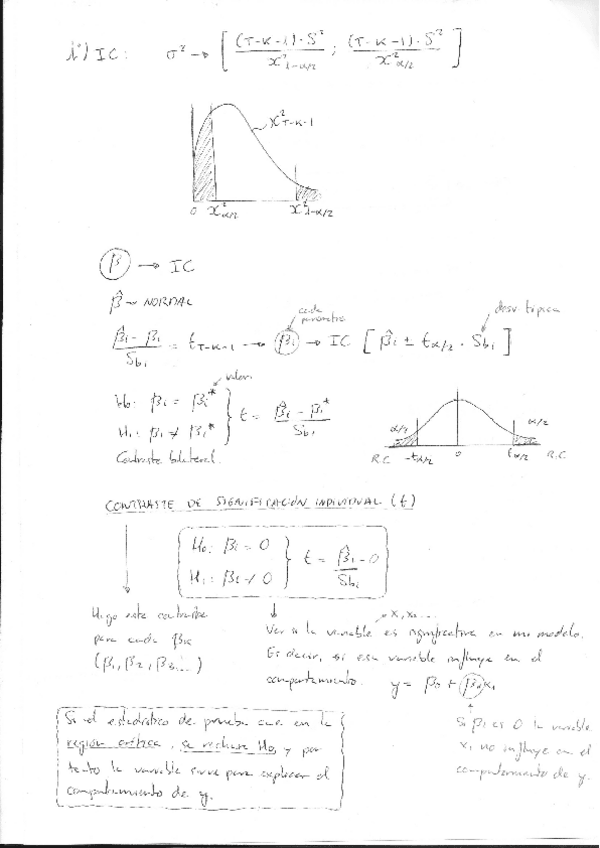 IC: σ² → [ (T-K-1)·S² / χ²1-α/2 ; (T-K-1)·S² / χ²α/2 ]
χ²T-K-1
0 χ²α/2 χ²1-α/2
β → IC
β̂ ~ NORMAL
cada parametro
desv. típica
β̂i - βi / Sbi = tT-K-1 → βi → IC [ β̂i ± tα/2 · Sbi ]
valor
H0: βi = βi*
H1: βi ≠ βi* } t = β̂i - βi* / Sbi
Contraste bilateral.
α/2 α/2
R.C -tα/2 0 tα/2 R.C
CONTRASTE DE SIGNIFICACIÓN INDIVIDUAL (t)
H0: βi = 0
H1: βi ≠ 0 } t = β̂i - 0 / Sbi
Hago este contraste
para cada
(β1, β2, β3...)
x1, x2...
Ver si la variable es significativa en mi modelo.
Es decir, si esa variable influye en el
comportamiento. y = β0 + β1x1
Si el estadístico de prueba cae en la
región crítica, se rechaza H0, y por
tanto la variable sirve para explicar el
comportamiento de y.
Si β1 es 0 la variable
x1 no influye en el
comportamiento de y.